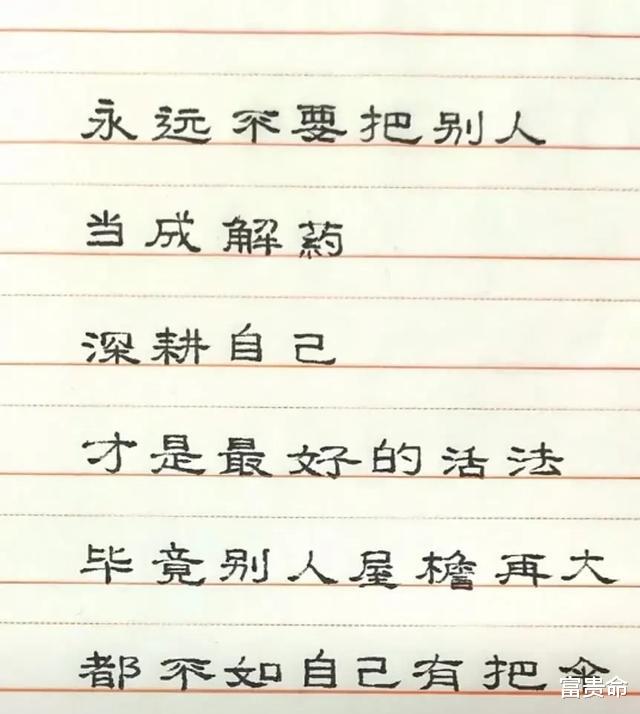 永远不要把别人
当成解药
深耕自己
才是最好的活法
毕竟别人屋檐再大
都不如自己有把伞
富贵命